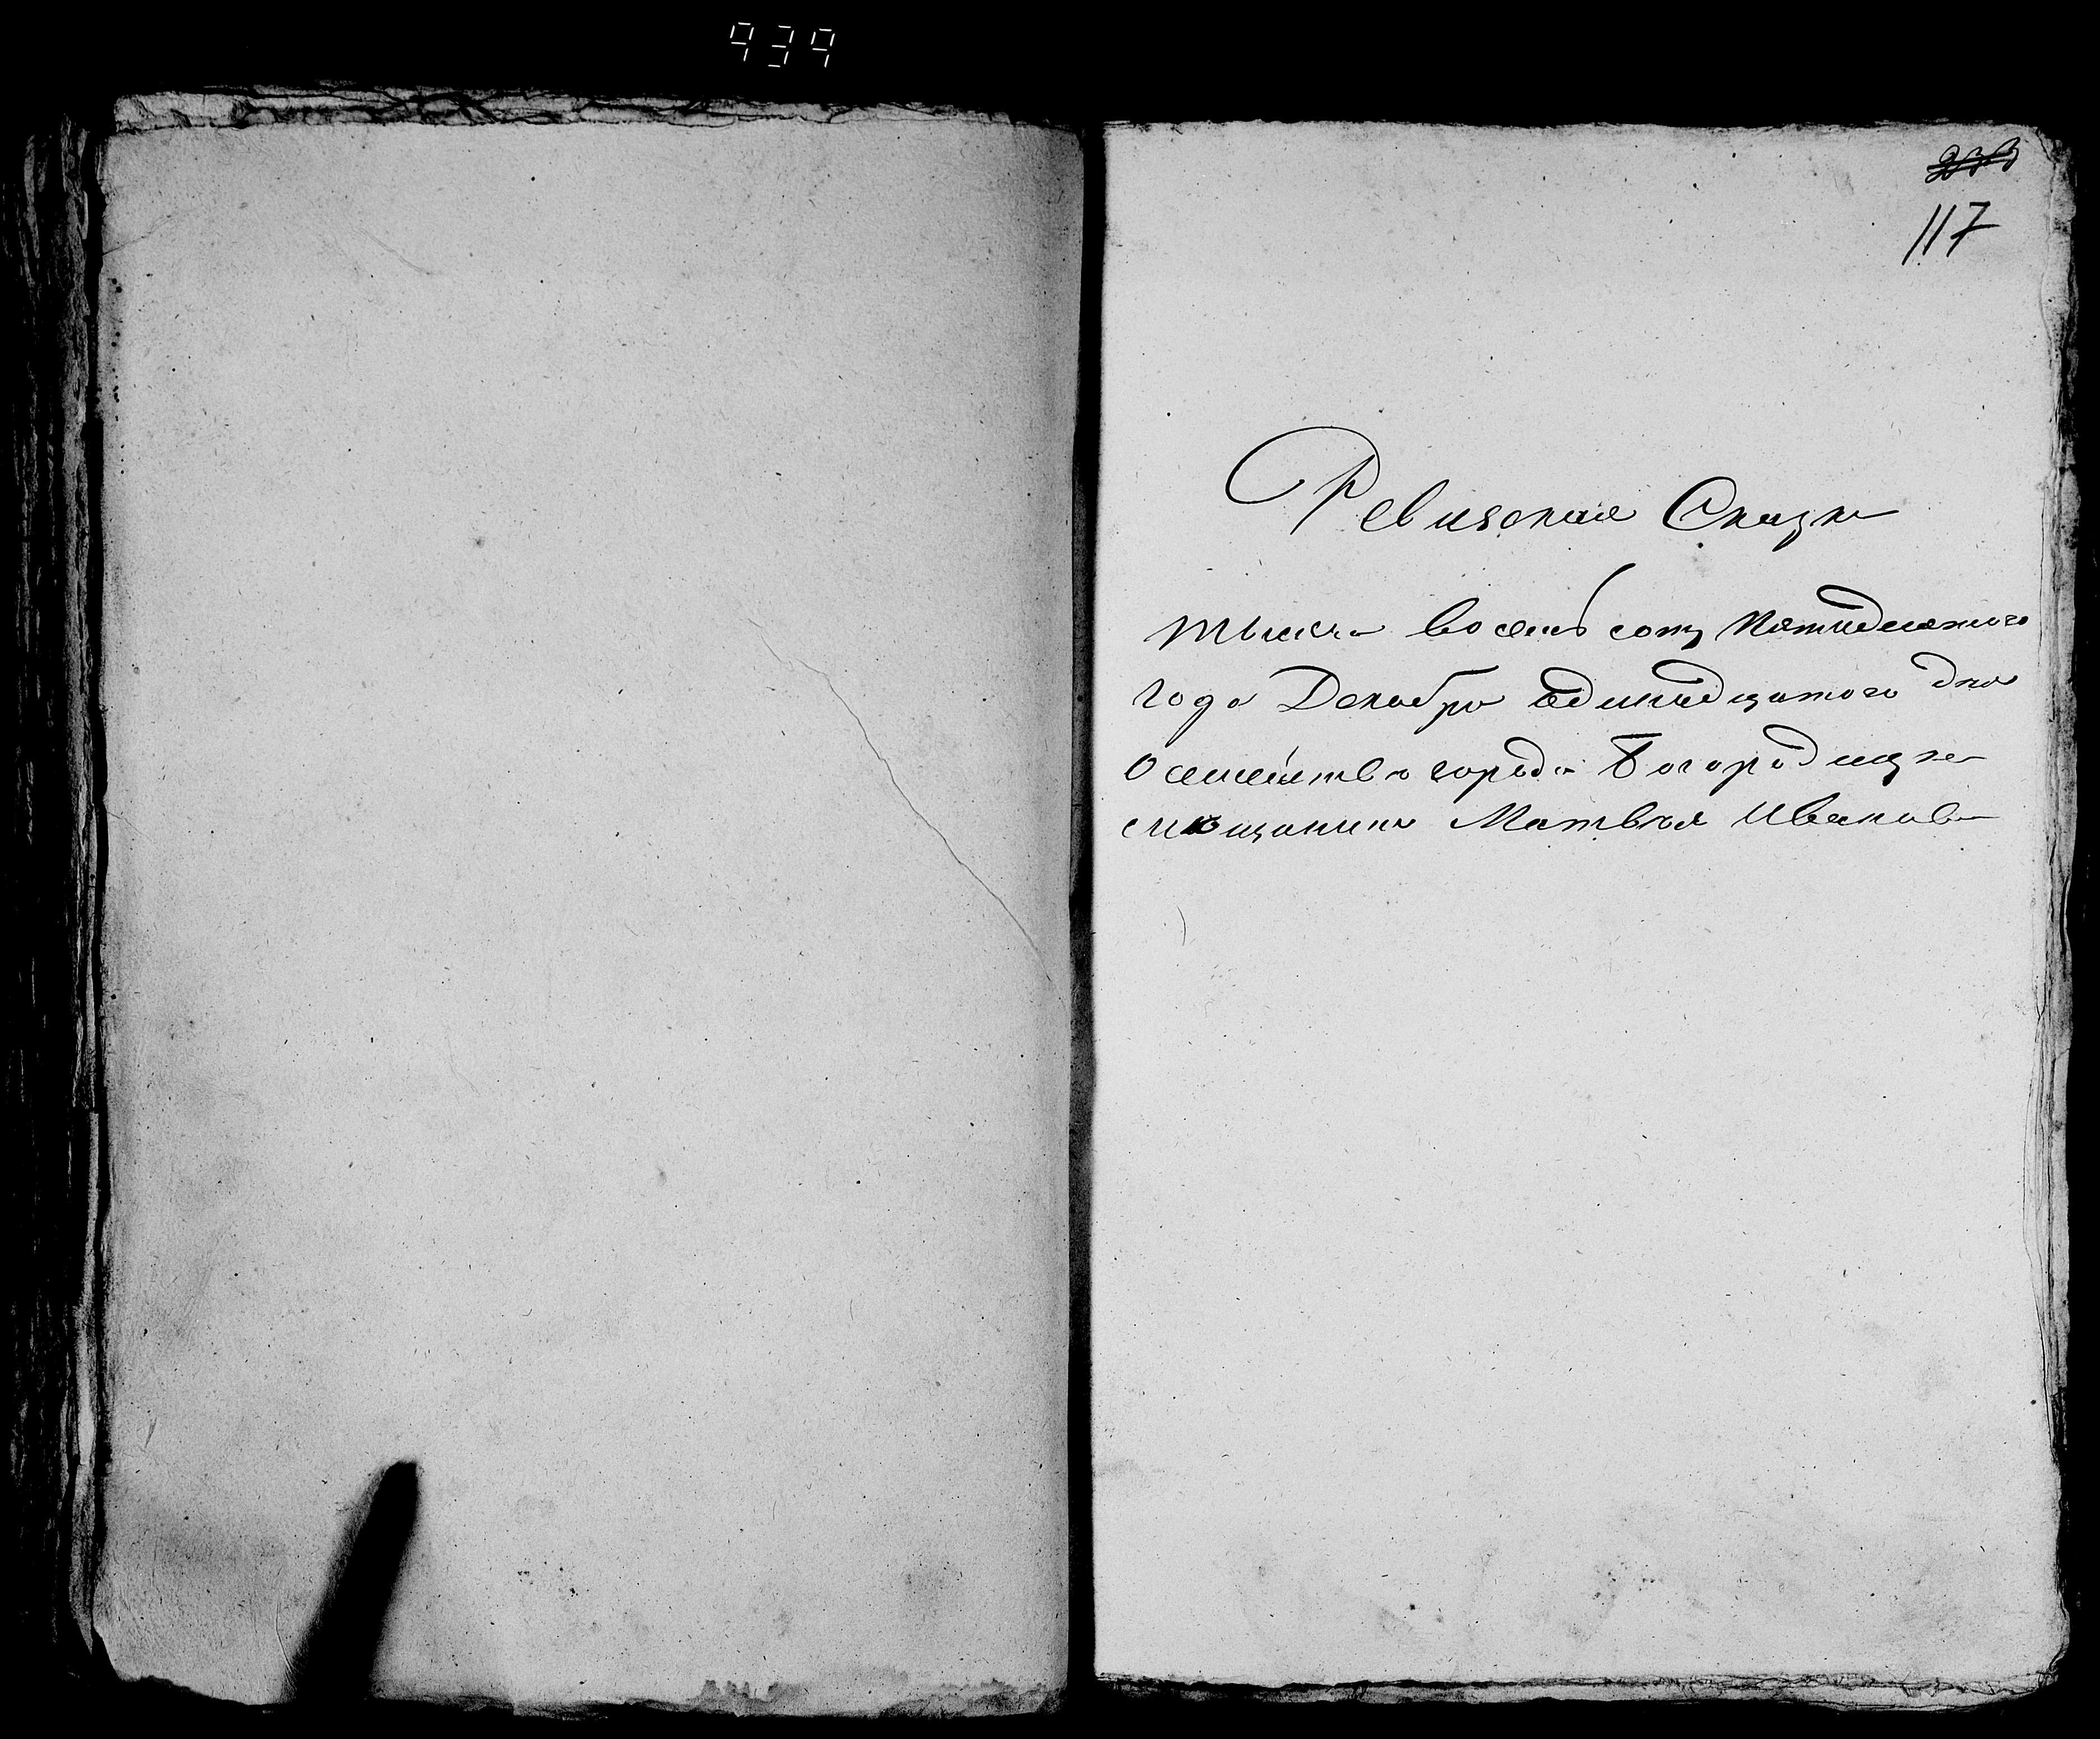 939
117
Ревизская Сказка
тысяча восемь сотъ пятидесятого
года Декабря одинадцатого дня
О семействе города Богородицка
мещанина Матвѣя Иванова